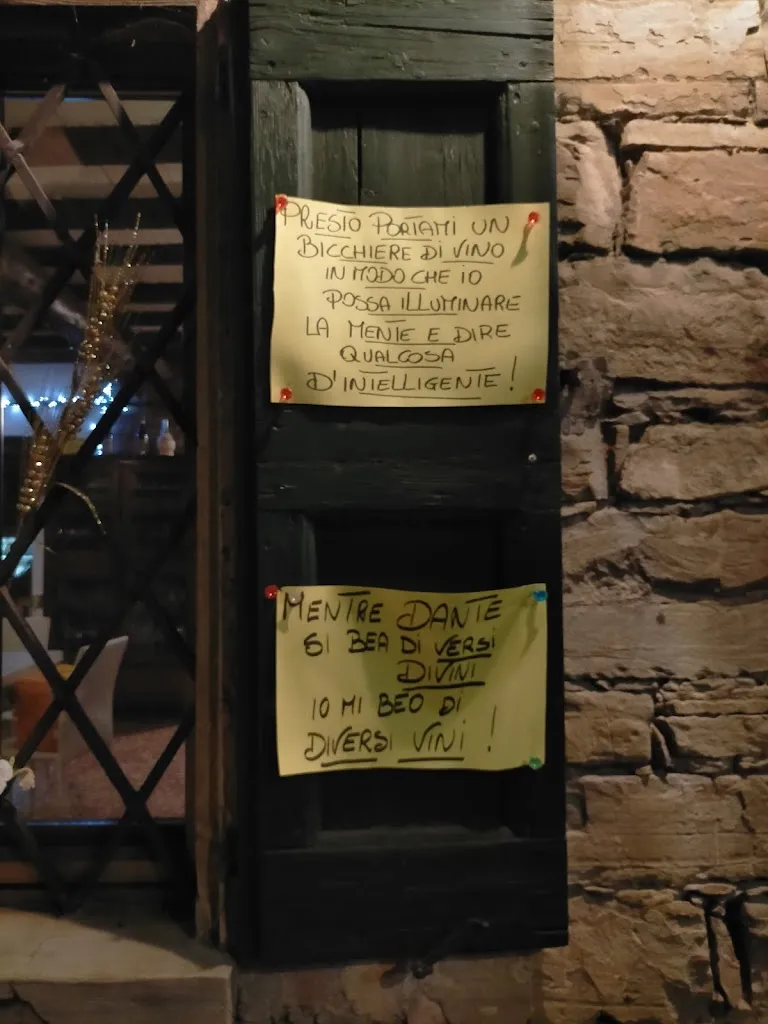 PRESTO PORTAMI UN
BICCHIERE DI VINO
IN MODO CHE IO
POSSA ILLUMINARE
LA MENTE E DIRE
QUALCOSA
D'INTELLIGENTE!
MENTRE DANTE
SI BEA DI VERSI
DIVINI
IO MI BEO DI
DIVERSI VINI!